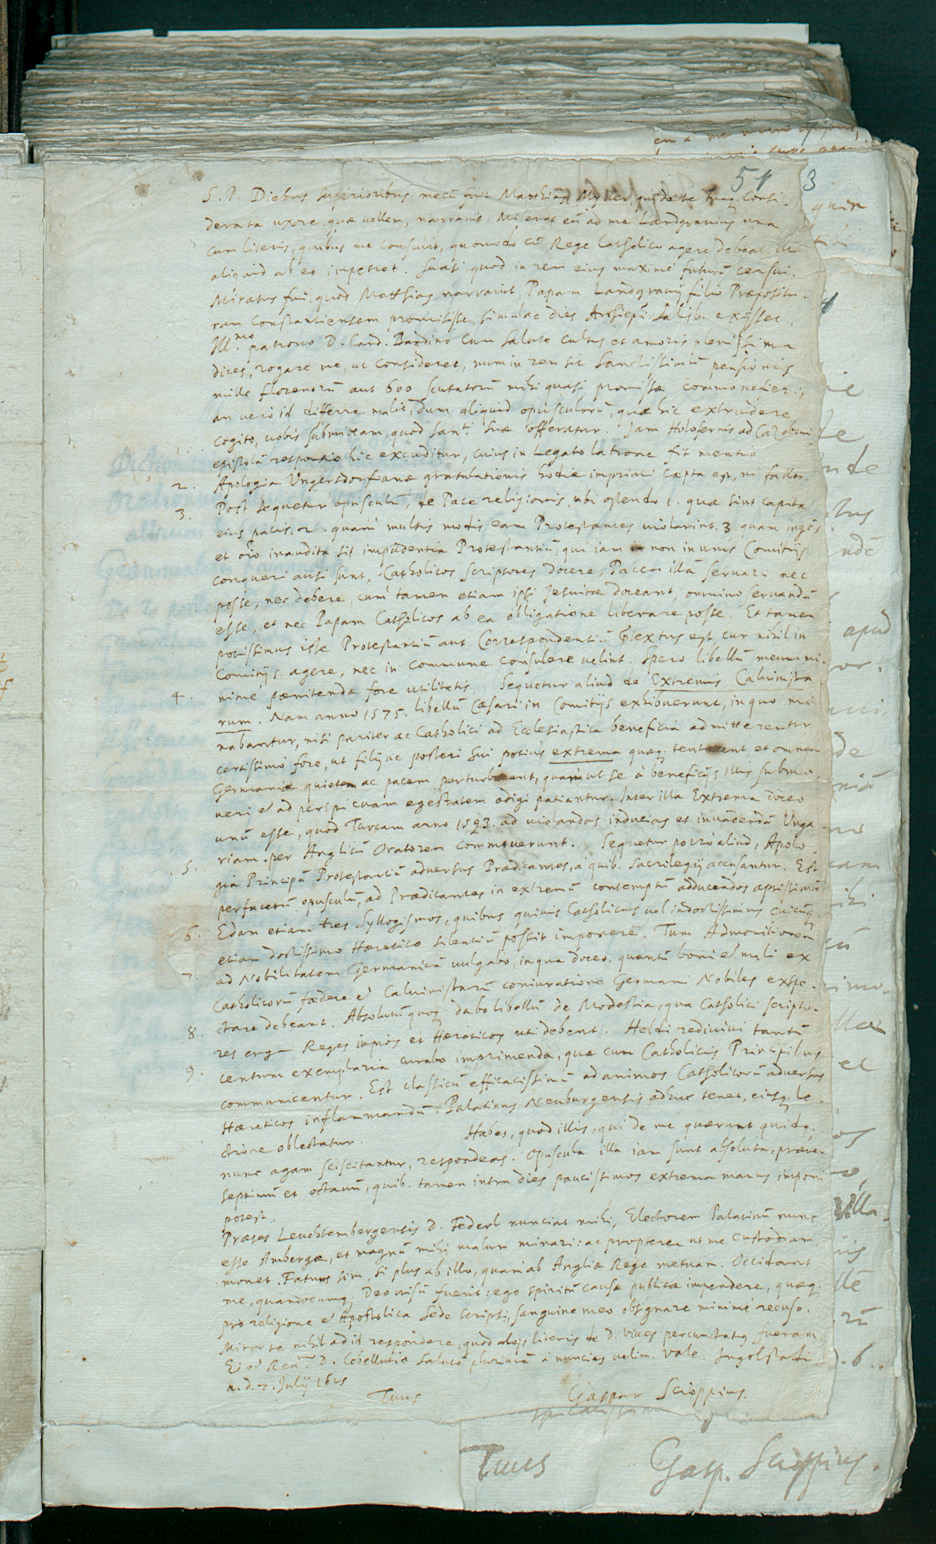 51 3
S. P. Diebus superioribus mecũ fuit Matthias Myller, qui de te
derata uxore quæ vellem, narravit. Miserat eũ ad me Landgravius una
cum literis, quibus me consulit, quomodo cũ Rege Catholico agere debeat ut
aliquid ab eo impetret. Suasi quod in rem eius maximè futurũ censui.
Miratus fui, quod Matthias narravit, Papam Landgravij filio Præpositu-
ram Constantiensem promisisse, simulac dies Archiepĩ Salisb. exisset.
Ill.mo patrono D. Card. Bandino cum salute cultus et amoris plenissima
dices, rogare me, ut consideret, num in rem sit Sanctissimũ pensionis
mille florenorũ aut 600 scutatorũ mihi quasi promissæ commonefieri,
an vero id differre malit, dum aliquid opusculorũ, quæ hic extrudere
cogito, vobis submittam, quod Sanc.ti Suæ offeratur. Jam Holofernis ad Cazobonũ
epistolæ responsio hic excuditur, cuius in Legato latrone fit mentio
2. Apologia Ungersdorfianæ gratulationis hodie imprimi cæpta est, ni fallor.
3. Post sequetur opusculũ, de Pace religionis, ubi ostendo 1. quæ sint capita
eius pacis. 2. quàm multis modis eam Protestantes violarint. 3 quam ingẽs
et oĩo inaudita sit impudentia Protestantiũ, qui iam non in unis Comitijs
conqueri ausi sunt, Catholicos scriptores docere, Pacem illã servari nec
posse, nec debere, cum tamen etiam ipsi Jesuitæ doceant, omnino servandã
esse, et nec Papam Catholicos ab ea obligatione liberare posse. Et tamen
potissimus iste Protestantiũ aut Correspondentiũ prætextus est, cur nihil in
Comitijs agere, nec in commune consulere velint. Spero libellũ meum mi-
4. nimè pœnitendæ fore utilitatis. Sequetur aliud de Extremis Calvinista-
rum. Nam anno 1575. libellũ Cæsari in Comitijs exhibuerunt, in quo mi-
nabantur, nisi pariter ac Catholici ad Ecclesiastica beneficia admitterentur
certissimũ fore, ut filij ac posteri sui potius extrema quæq. tentarent et omnem
Germaniæ quietem ac pacem perturbarent, quam ut se à beneficijs illis submo-
veri et ad perspicuam egestatem adigi patiantur. Inter illa Extrema doceo
unũ esse, quod Turcam anno 1593. ad violandas inducias et invadendã Unga-
5. riam per Anglicũ Oratorem commoverunt. Sequetur porro aliud, Apolo-
gia Principũ Protestantiũ adversus Prædicantes, à quib. sacrilegij accusantur. Est
perfacetum opusculũ, ad Prædicantes in extremũ contemptũ adducendos aptissimũ
6. Edam etiam tres syllogismos, quibus quivis Catholicus vel indoctissimus cuicũq.
etiam doctissimo Hæretico silentiũ possit imponere. Tum Admonitionem
7. ad Nobilitatem Germanicã vulgabo, in qua doceo, quantũ boni et mali ex
Catholicorũ fœdere et Calvinistarũ coniuratione Germani Nobiles exspe-
8. ctare debeant. Absolutũ quoq. dabo libellũ de Modestia, qua Catholici scripto-
res erga Reges impios et Hæreticos uti debent. Heldi redivivi tantũ
9. centum exemplaria curabo imprimenda, quæ cum Catholicis Principibus
communicentur. Est classicũ efficacissimũ ad animos Catholicorũ adversus
Hæreticos inflammandũ. Palatinus Neuburgensis adhuc tenet, eiusq. le-
ctione oblectatur. Habes, quod illis, qui de me quærunt quidq.
nunc agam sciscitantur, respondeas. Opuscula illa iam sunt absoluta, præter
septimũ et octavũ, quib. tamen intra dies paucissimos extrema manus imponi
potest.
Præses Leuchtembergensis D. Federl nunciat mihi, Electorem Palatinũ nunc
esse Ambergæ, et magnũ mihi malum minari: ac propterea ut me custodiam
monet. Fatuus sim, si plus ab illo, quam ab Angliæ Rege metuam. Occidant
me, quandocunq. Deo visũ fuerit: ego spiritũ causæ publicæ impendere, quæq.
pro religione et Apostolica Sede scripsi, sanguine meo obsignare minimè recuso.
Miror te nihil ad id respondere, quod alijs literis de D. Vives percunctatus fueram
Ei et Reu.mo D. Cobellutio salutẽ plurimã à nuncies velim. Vale. Ingolstadij
a. d. 7. Julij 1615
Tuus Gaspar Scioppius.
Tuus Gasp. Scioppius.